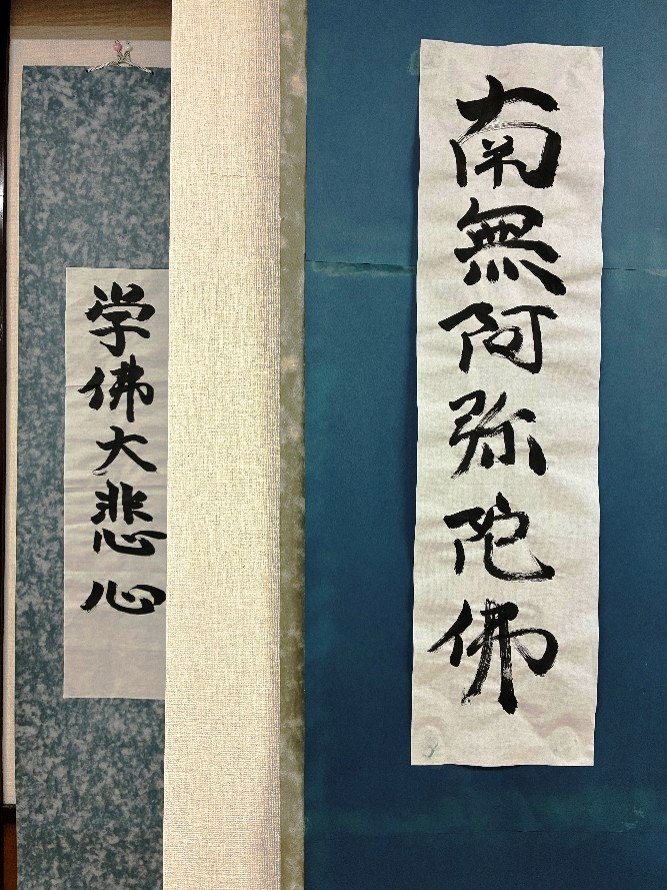 南無阿弥陀佛
学佛大悲心